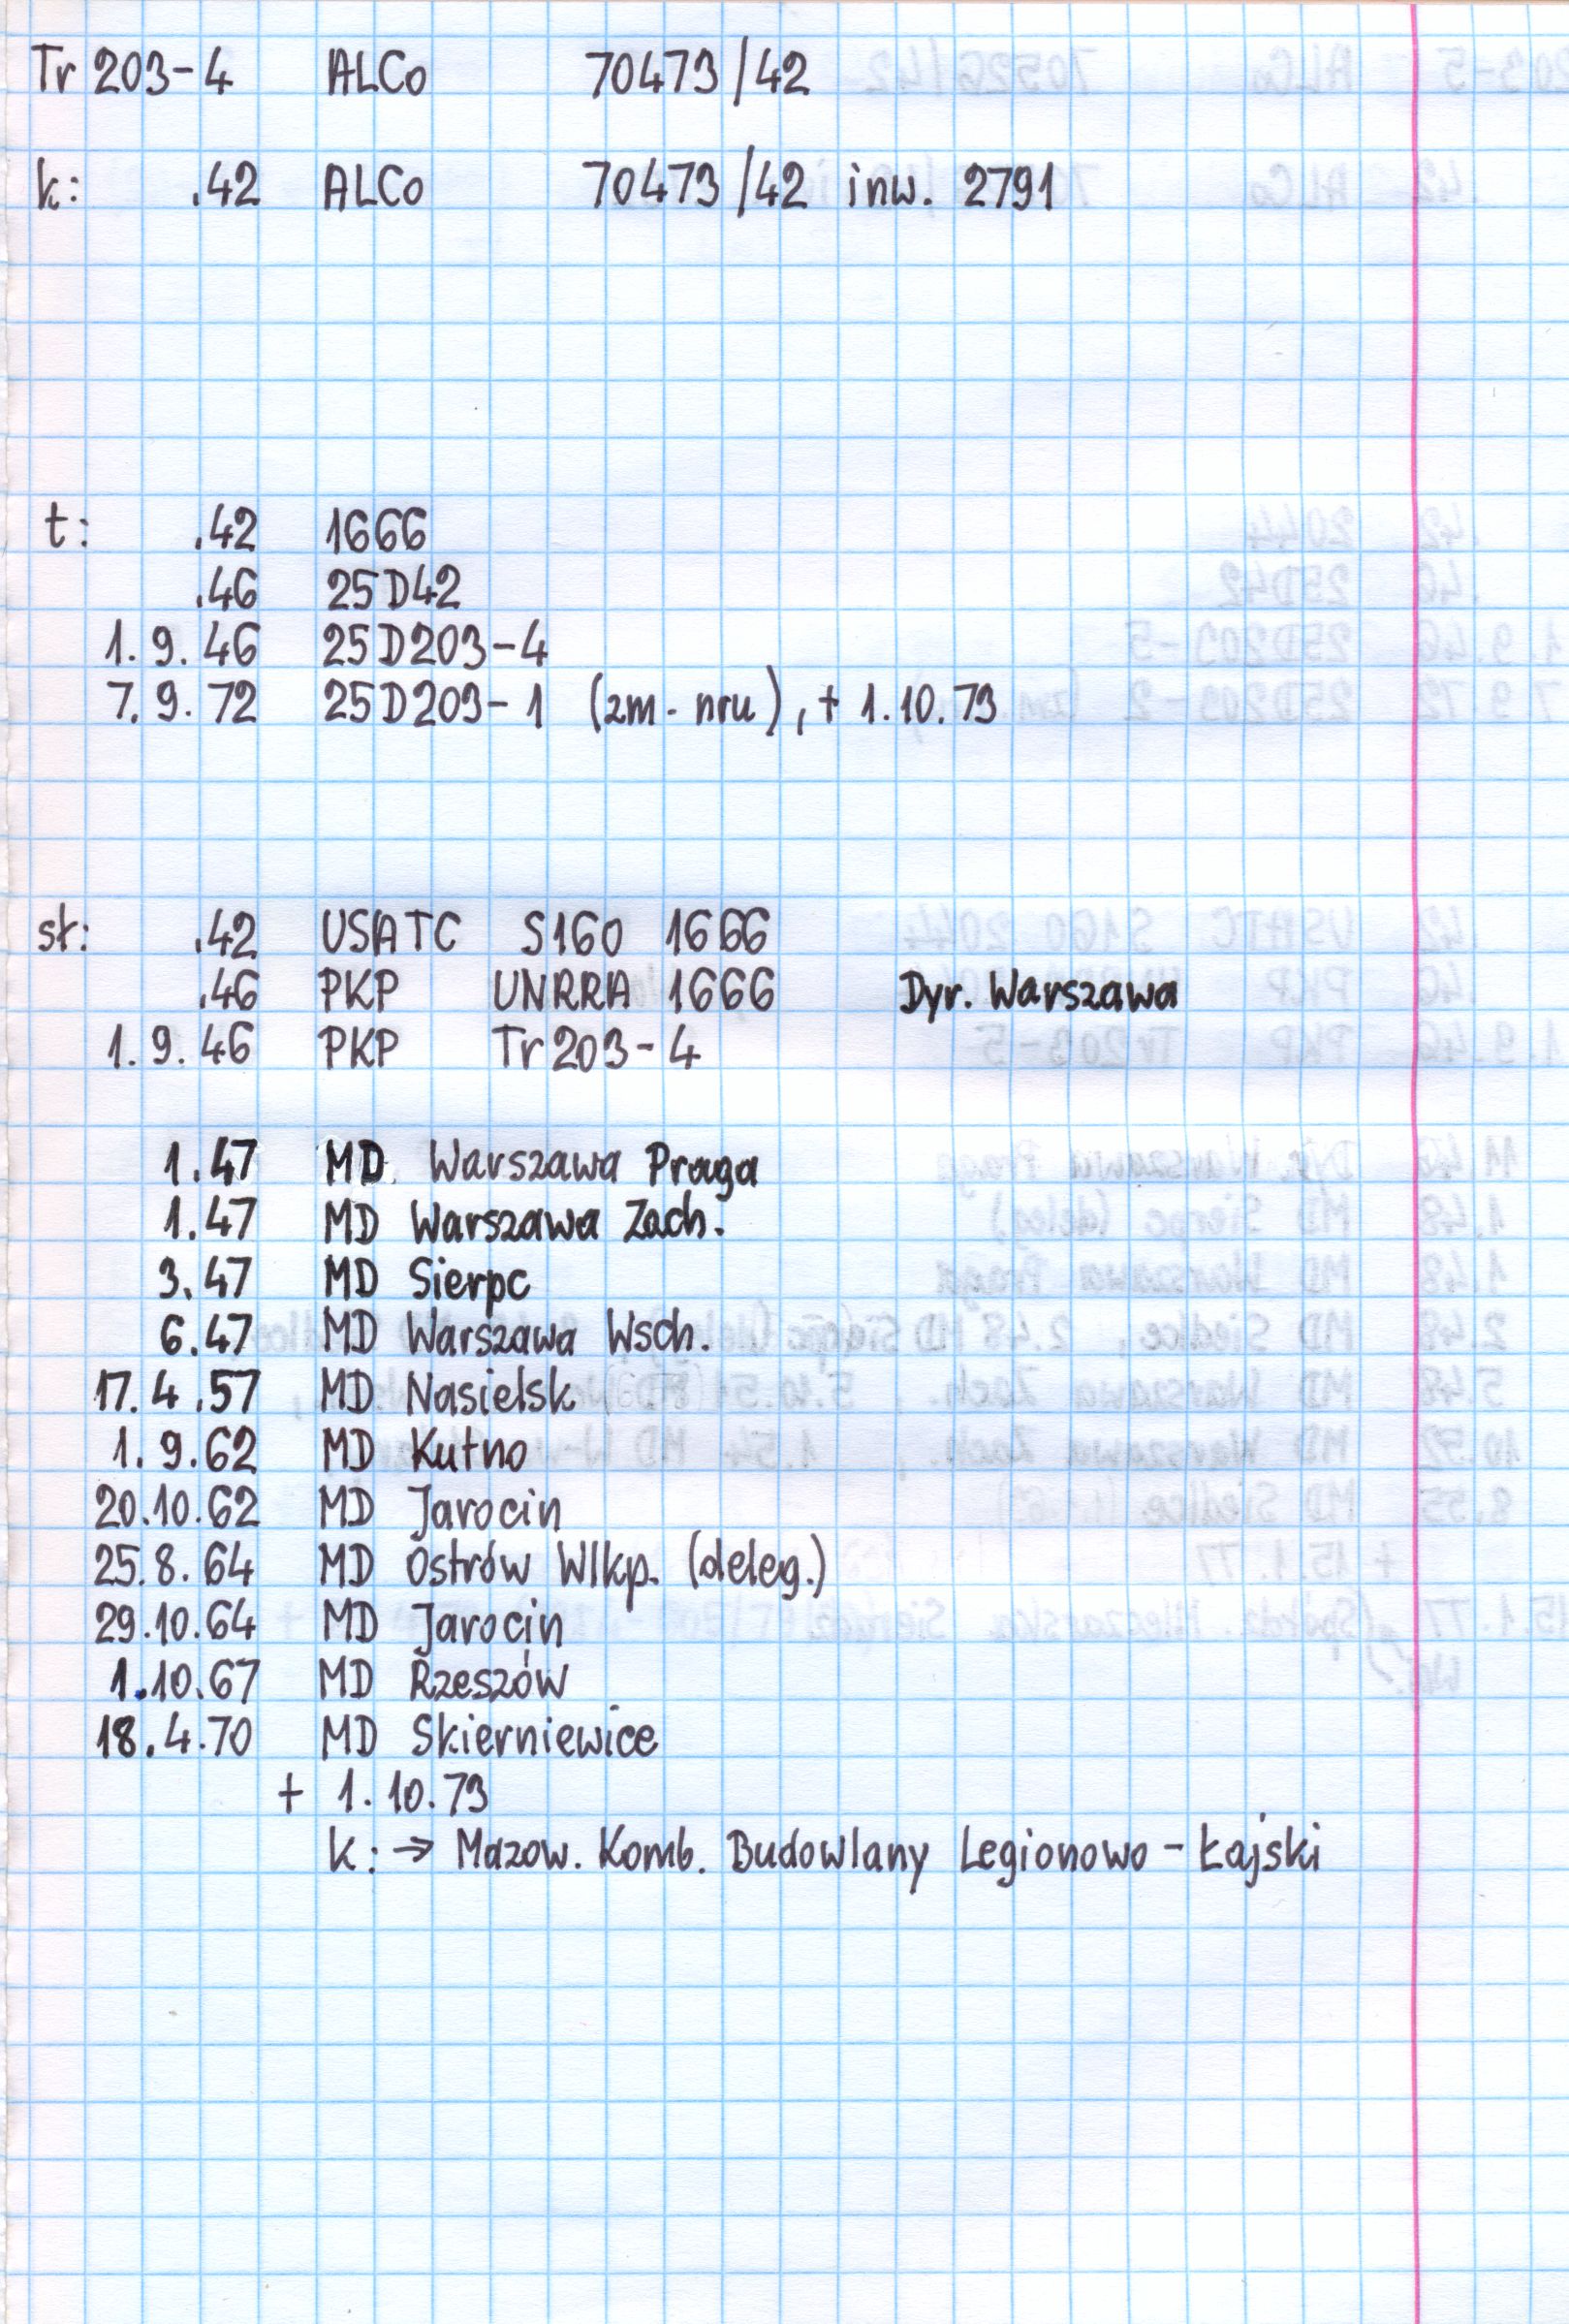 Tr 203-4 ALCo 70473/42
k: .42 ALCo 70473/42 inw. 2791
t: .42 1666
.46 25D42
1.9.46 25D203-4
7.9.72 25D203-1 (zm. nru), + 1.10.73
sł: .42 USATC S160 1666
.46 PKP UNRRA 1666 Dyr. Warszawa
1.9.46 PKP Tr 203-4
1.47 MD Warszawa Praga
1.47 MD Warszawa Zach.
3.47 MD Sierpc
6.47 MD Warszawa Wsch.
17.4.57 MD Nasielsk
1.9.62 MD Kutno
20.10.62 MD Jarocin
25.8.64 MD Ostrów Wlkp. (deleg.)
29.10.64 MD Jarocin
1.10.67 MD Rzeszów
18.4.70 MD Skierniewice
+ 1.10.73
k: → Mazow. Komb. Budowlany Legionowo - Łajski